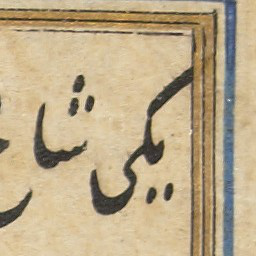 یکی شاخ